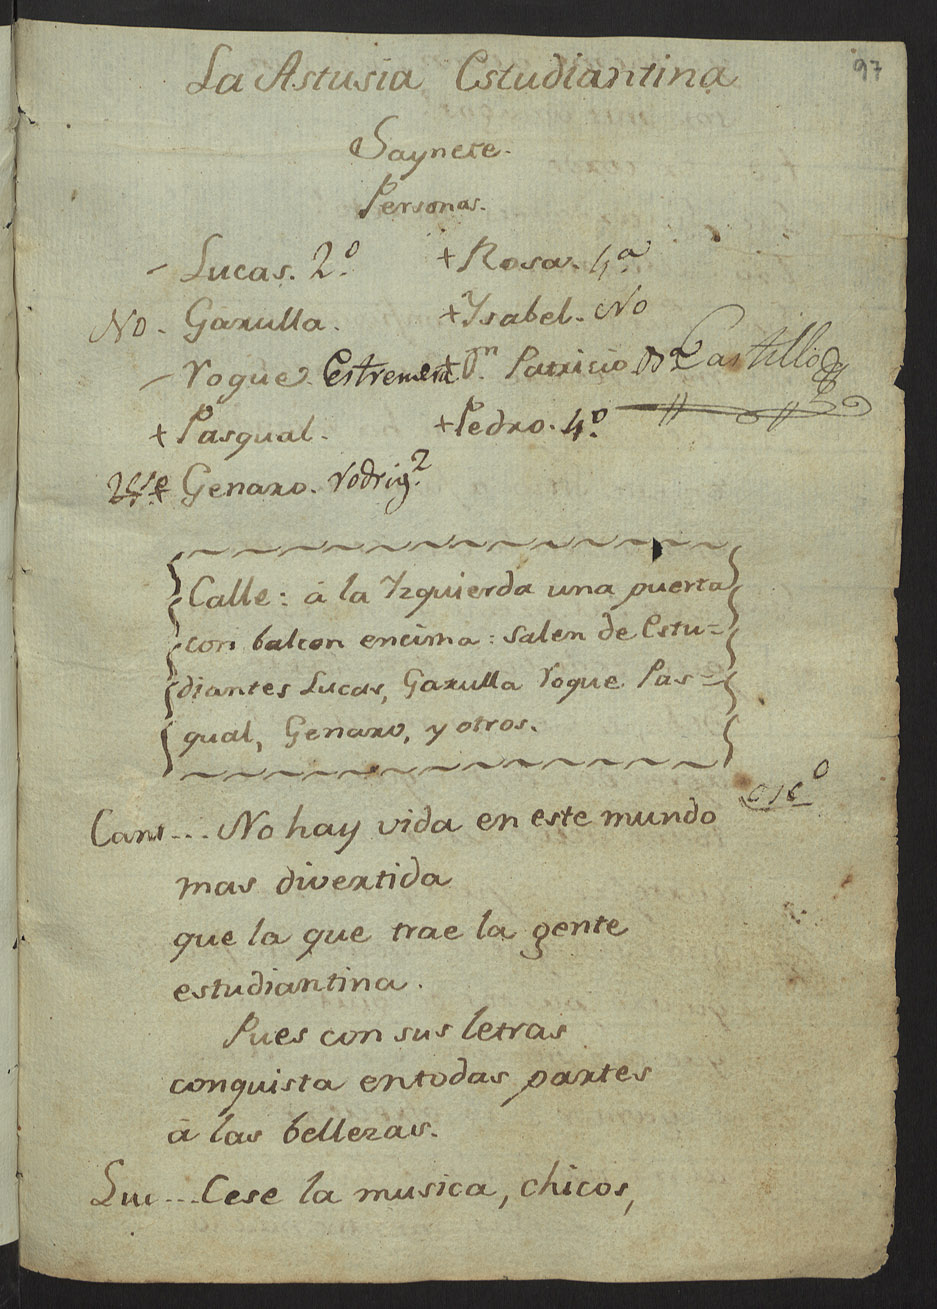 97
La Astusia Estudiantina
Saynete.
Personas.
- Lucas. 2.º + Rosa. 4.ª
No - Garulla. + Ysabel. No
- Roque. Estremera + Dn. Patricio Castillo
+ Pasqual. + Pedro. 4.º
Genaro. Rodrig.z
Calle: á la Yzquierda una puerta
con balcon encima: salen de Estu=
diantes Lucas, Garulla Roque Pas=
qual, Genaro, y otros.
Cant... No hay vida en este mundo
mas divertida
que la que trae la gente
estudiantina.
Pues con sus letras
conquista entodas partes
á las bellezas.
Luc... Cese la musica, chicos,